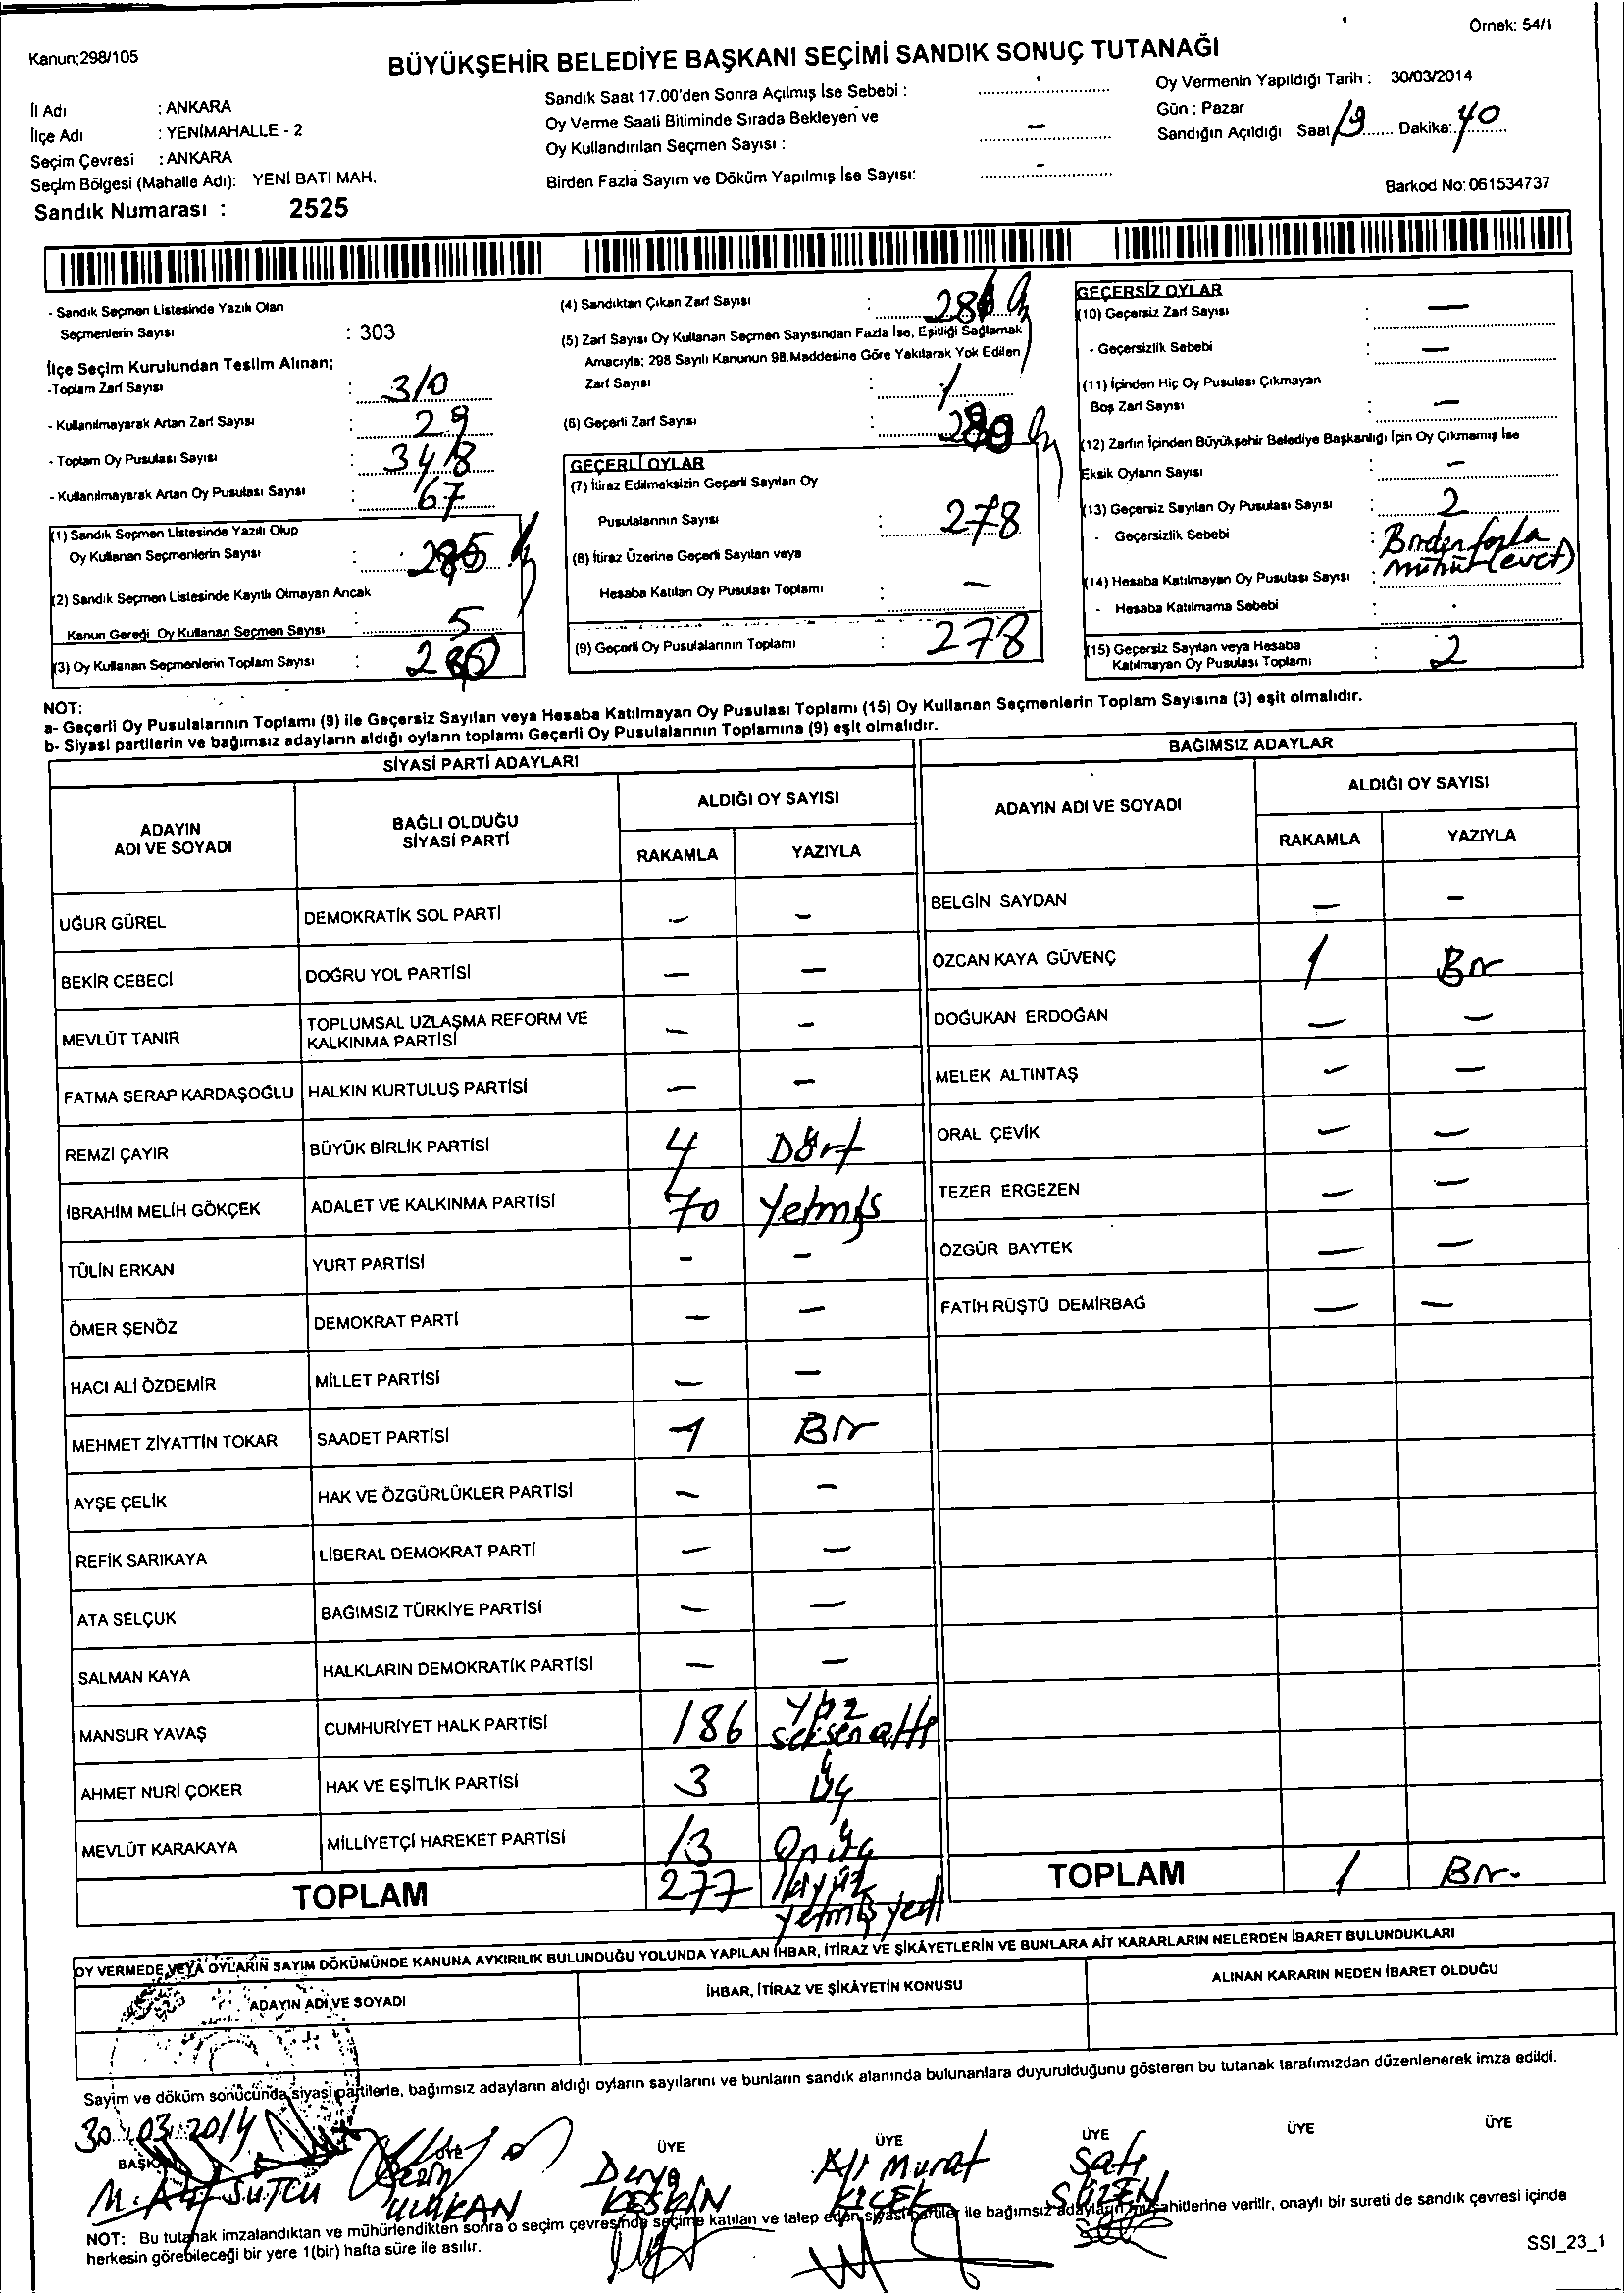 Örnek: 54/1
Kanun;298/105
BÜYÜKŞEHİR BELEDİYE BAŞKANI SEÇİMİ SANDIK SONUÇ TUTANAĞI
İl Adı : ANKARA
İlçe Adı : YENİMAHALLE - 2
Seçim Çevresi : ANKARA
Seçim Bölgesi (Mahalle Adı): YENİ BATI MAH.
Sandık Numarası : 2525
Sandık Saat 17.00'den Sonra Açılmış İse Sebebi :
Oy Verme Saati Bitiminde Sırada Bekleyen ve
Oy Kullandırılan Seçmen Sayısı : —
Birden Fazla Sayım ve Döküm Yapılmış İse Sayısı: -
Oy Vermenin Yapıldığı Tarih : 30/03/2014
Gün : Pazar
Sandığın Açıldığı Saat 19 Dakika: 40
Barkod No: 061534737
- Sandık Seçmen Listesinde Yazılı Olan
Seçmenlerin Sayısı : 303
İlçe Seçim Kurulundan Teslim Alınan;
-Toplam Zarf Sayısı : 310
- Kullanılmayarak Artan Zarf Sayısı : 29
- Toplam Oy Pusulası Sayısı : 348
- Kullanılmayarak Artan Oy Pusulası Sayısı : 67
(1) Sandık Seçmen Listesinde Yazılı Olup
Oy Kullanan Seçmenlerin Sayısı :
(2) Sandık Seçmen Listesinde Kayıtlı Olmayan Ancak
Kanun Gereği Oy Kullanan Seçmen Sayısı 5
(3) Oy Kullanan Seçmenlerin Toplam Sayısı :
(4) Sandıktan Çıkan Zarf Sayısı :
(5) Zarf Sayısı Oy Kullanan Seçmen Sayısından Fazla İse, Eşitliği Sağlamak
Amacıyla; 298 Sayılı Kanunun 98.Maddesine Göre Yakılarak Yok Edilen
Zarf Sayısı : 1
(6) Geçerli Zarf Sayısı :
GEÇERLİ OYLAR
(7) İtiraz Edilmeksizin Geçerli Sayılan Oy
Pusulalarının Sayısı : 278
(8) İtiraz Üzerine Geçerli Sayılan veya
Hesaba Katılan Oy Pusulası Toplamı : —
(9) Geçerli Oy Pusulalarının Toplamı : 278
GEÇERSİZ OYLAR
(10) Geçersiz Zarf Sayısı : —
- Geçersizlik Sebebi : —
(11) İçinden Hiç Oy Pusulası Çıkmayan
Boş Zarf Sayısı : —
(12) Zarfın İçinden Büyükşehir Belediye Başkanlığı İçin Oy Çıkmamış İse
Eksik Oyların Sayısı : —
(13) Geçersiz Sayılan Oy Pusulası Sayısı : 2
- Geçersizlik Sebebi : Birden fazla
mühür (evet)
(14) Hesaba Katılmayan Oy Pusulası Sayısı :
- Hesaba Katılmama Sebebi :
(15) Geçersiz Sayılan veya Hesaba
Katılmayan Oy Pusulası Toplamı : 2
NOT:
a- Geçerli Oy Pusulalarının Toplamı (9) ile Geçersiz Sayılan veya Hesaba Katılmayan Oy Pusulası Toplamı (15) Oy Kullanan Seçmenlerin Toplam Sayısına (3) eşit olmalıdır.
b- Siyasi partilerin ve bağımsız adayların aldığı oyların toplamı Geçerli Oy Pusulalarının Toplamına (9) eşit olmalıdır.
SİYASİ PARTİ ADAYLARI
ADAYIN ADI VE SOYADI
BAĞLI OLDUĞU SİYASİ PARTİ
ALDIĞI OY SAYISI
RAKAMLA YAZIYLA
UĞUR GÜREL DEMOKRATİK SOL PARTİ — —
BEKİR CEBECİ DOĞRU YOL PARTİSİ — —
MEVLÜT TANIR TOPLUMSAL UZLAŞMA REFORM VE KALKINMA PARTİSİ — —
FATMA SERAP KARDAŞOĞLU HALKIN KURTULUŞ PARTİSİ — —
REMZİ ÇAYIR BÜYÜK BİRLİK PARTİSİ 4 Dört
İBRAHİM MELİH GÖKÇEK ADALET VE KALKINMA PARTİSİ 70 Yetmiş
TÜLİN ERKAN YURT PARTİSİ — —
ÖMER ŞENÖZ DEMOKRAT PARTİ — —
HACI ALİ ÖZDEMİR MİLLET PARTİSİ — —
MEHMET ZİYATTİN TOKAR SAADET PARTİSİ 1 Bir
AYŞE ÇELİK HAK VE ÖZGÜRLÜKLER PARTİSİ — —
REFİK SARIKAYA LİBERAL DEMOKRAT PARTİ — —
ATA SELÇUK BAĞIMSIZ TÜRKİYE PARTİSİ — —
SALMAN KAYA HALKLARIN DEMOKRATİK PARTİSİ — —
MANSUR YAVAŞ CUMHURİYET HALK PARTİSİ 186 Yüz seksen altı
AHMET NURİ ÇOKER HAK VE EŞİTLİK PARTİSİ 3 Üç
MEVLÜT KARAKAYA MİLLİYETÇİ HAREKET PARTİSİ 13 Onüç
TOPLAM 277 İkiyüz yetmiş yedi
BAĞIMSIZ ADAYLAR
ADAYIN ADI VE SOYADI
ALDIĞI OY SAYISI
RAKAMLA YAZIYLA
BELGİN SAYDAN — —
ÖZCAN KAYA GÜVENÇ 1 Bir
DOĞUKAN ERDOĞAN — —
MELEK ALTINTAŞ — —
ORAL ÇEVİK — —
TEZER ERGEZEN — —
ÖZGÜR BAYTEK — —
FATİH RÜŞTÜ DEMİRBAĞ — —
TOPLAM 1 Bir.
OY VERMEDE VEYA OYLARIN SAYIM DÖKÜMÜNDE KANUNA AYKIRILIK BULUNDUĞU YOLUNDA YAPILAN İHBAR, İTİRAZ VE ŞİKÂYETLERİN VE BUNLARA AİT KARARLARIN NELERDEN İBARET BULUNDUKLARI
ADAYIN ADI VE SOYADI
İHBAR, İTİRAZ VE ŞİKÂYETİN KONUSU
ALINAN KARARIN NEDEN İBARET OLDUĞU
Sayım ve döküm sonucunda siyasi partilerle, bağımsız adayların aldığı oyların sayılarını ve bunların sandık alanında bulunanlara duyurulduğunu gösteren bu tutanak tarafımızdan düzenlenerek imza edildi.
30.03.2014
BAŞKAN ÜYE ÜYE ÜYE ÜYE ÜYE ÜYE
SÜTCÜ
Derya KESKİN
Ali Murat KIÇEK
Satı
NOT: Bu tutanak imzalandıktan ve mühürlendikten sonra o seçim çevresinde seçime katılan ve talep eden siyasi partiler ile bağımsız adayların müşahitlerine verilir, onaylı bir sureti de sandık çevresi içinde
herkesin görebileceği bir yere 1(bir) hafta süre ile asılır.
SSI_23_1